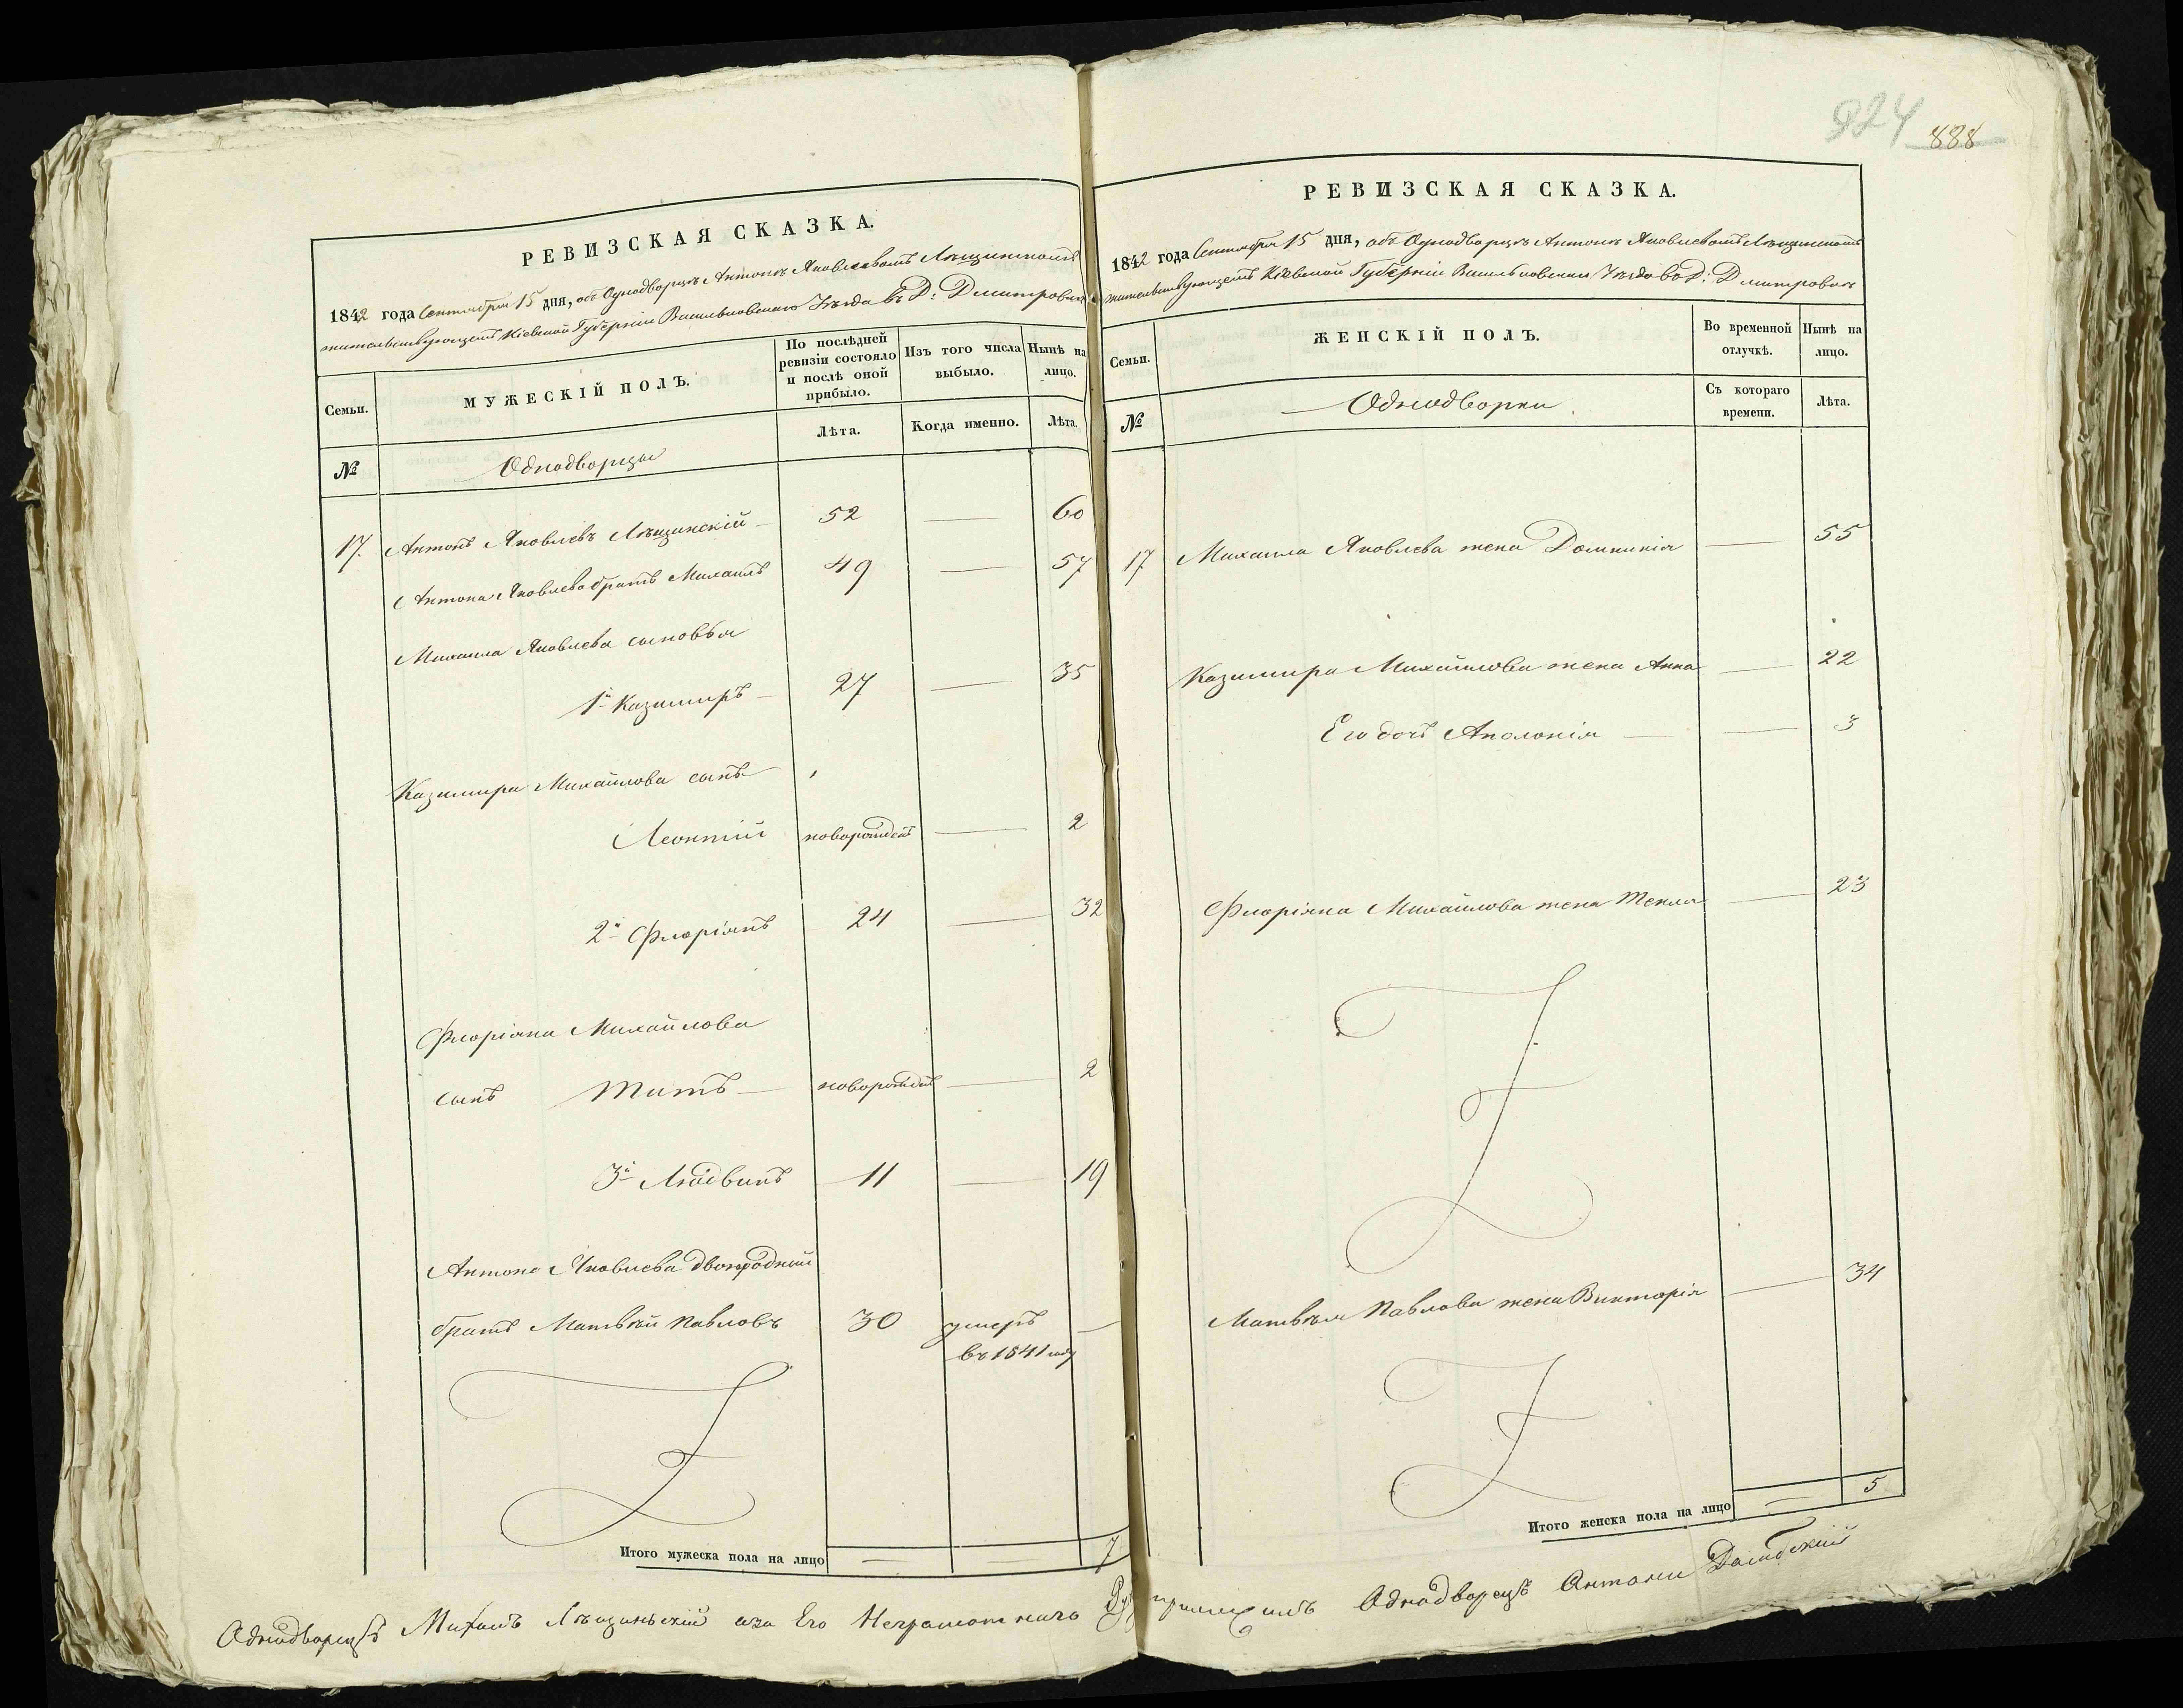 РЕВИЗСКАЯ СКАЗКА.
1842 года Сентября 15 дня, объ Однодворцѣ Антонѣ Яковлевомъ Лѣщинскомъ
жительствующемъ Кіевской Губерніи Васильковскаго Уѣзда въ Д: Дмитровкѣ
Семьи.
МУЖЕСКІЙ ПОЛЪ.
По послѣдней ревизіи состояло и послѣ оной прибыло.
Изъ того числа выбыло.
Нынѣ на лицо.
№
Однодворцы
Лѣта.
Когда именно.
Лѣта.
17. Антонъ Яковлевъ Лѣщинскій — 52 — 60
Антона Яковлева братъ Михаилъ 49 — 57
Михаила Яковлева сыновья
1й Казимиръ — 27 — 35
Казимира Михайлова сынъ
Леонтій новорожден — 2
2й Флоріянъ 24 — 32
Флоріяна Михайлова
сынъ Титъ — новорожден — 2
3й Людвикъ 11 — 19
Антона Яковлева двоюродный
братъ Матвѣй Павловъ 30 умеръ —
въ 1841 году
Итого мужеска пола на лицо — — 7
824 888
РЕВИЗСКАЯ СКАЗКА.
1842 года Сентября 15 дня, объ Однодворцѣ Антонѣ Яковлевомъ Лѣщинскомъ
жительствующемъ Кіевской Губерніи Васильковскаго Уѣзда въ Д: Дмитровкѣ
Семьи.
ЖЕНСКІЙ ПОЛЪ.
Во временной отлучкѣ.
Нынѣ на лицо.
№
Однодворки
Съ котораго времени.
Лѣта.
17 Михаила Яковлева жена Домникія — 55
Казимира Михайлова жена Анна — 22
Его дочь Аполонія — — 3
Флоріяна Михайлова жена Текля — 23
Матвѣя Павлова жена Викторія — 34
Итого женска пола на лицо — 5
Однодворецъ Михаилъ Лѣщиньскій аза Его Неграмотнаго Руку приложилъ Однодворецъ Антони